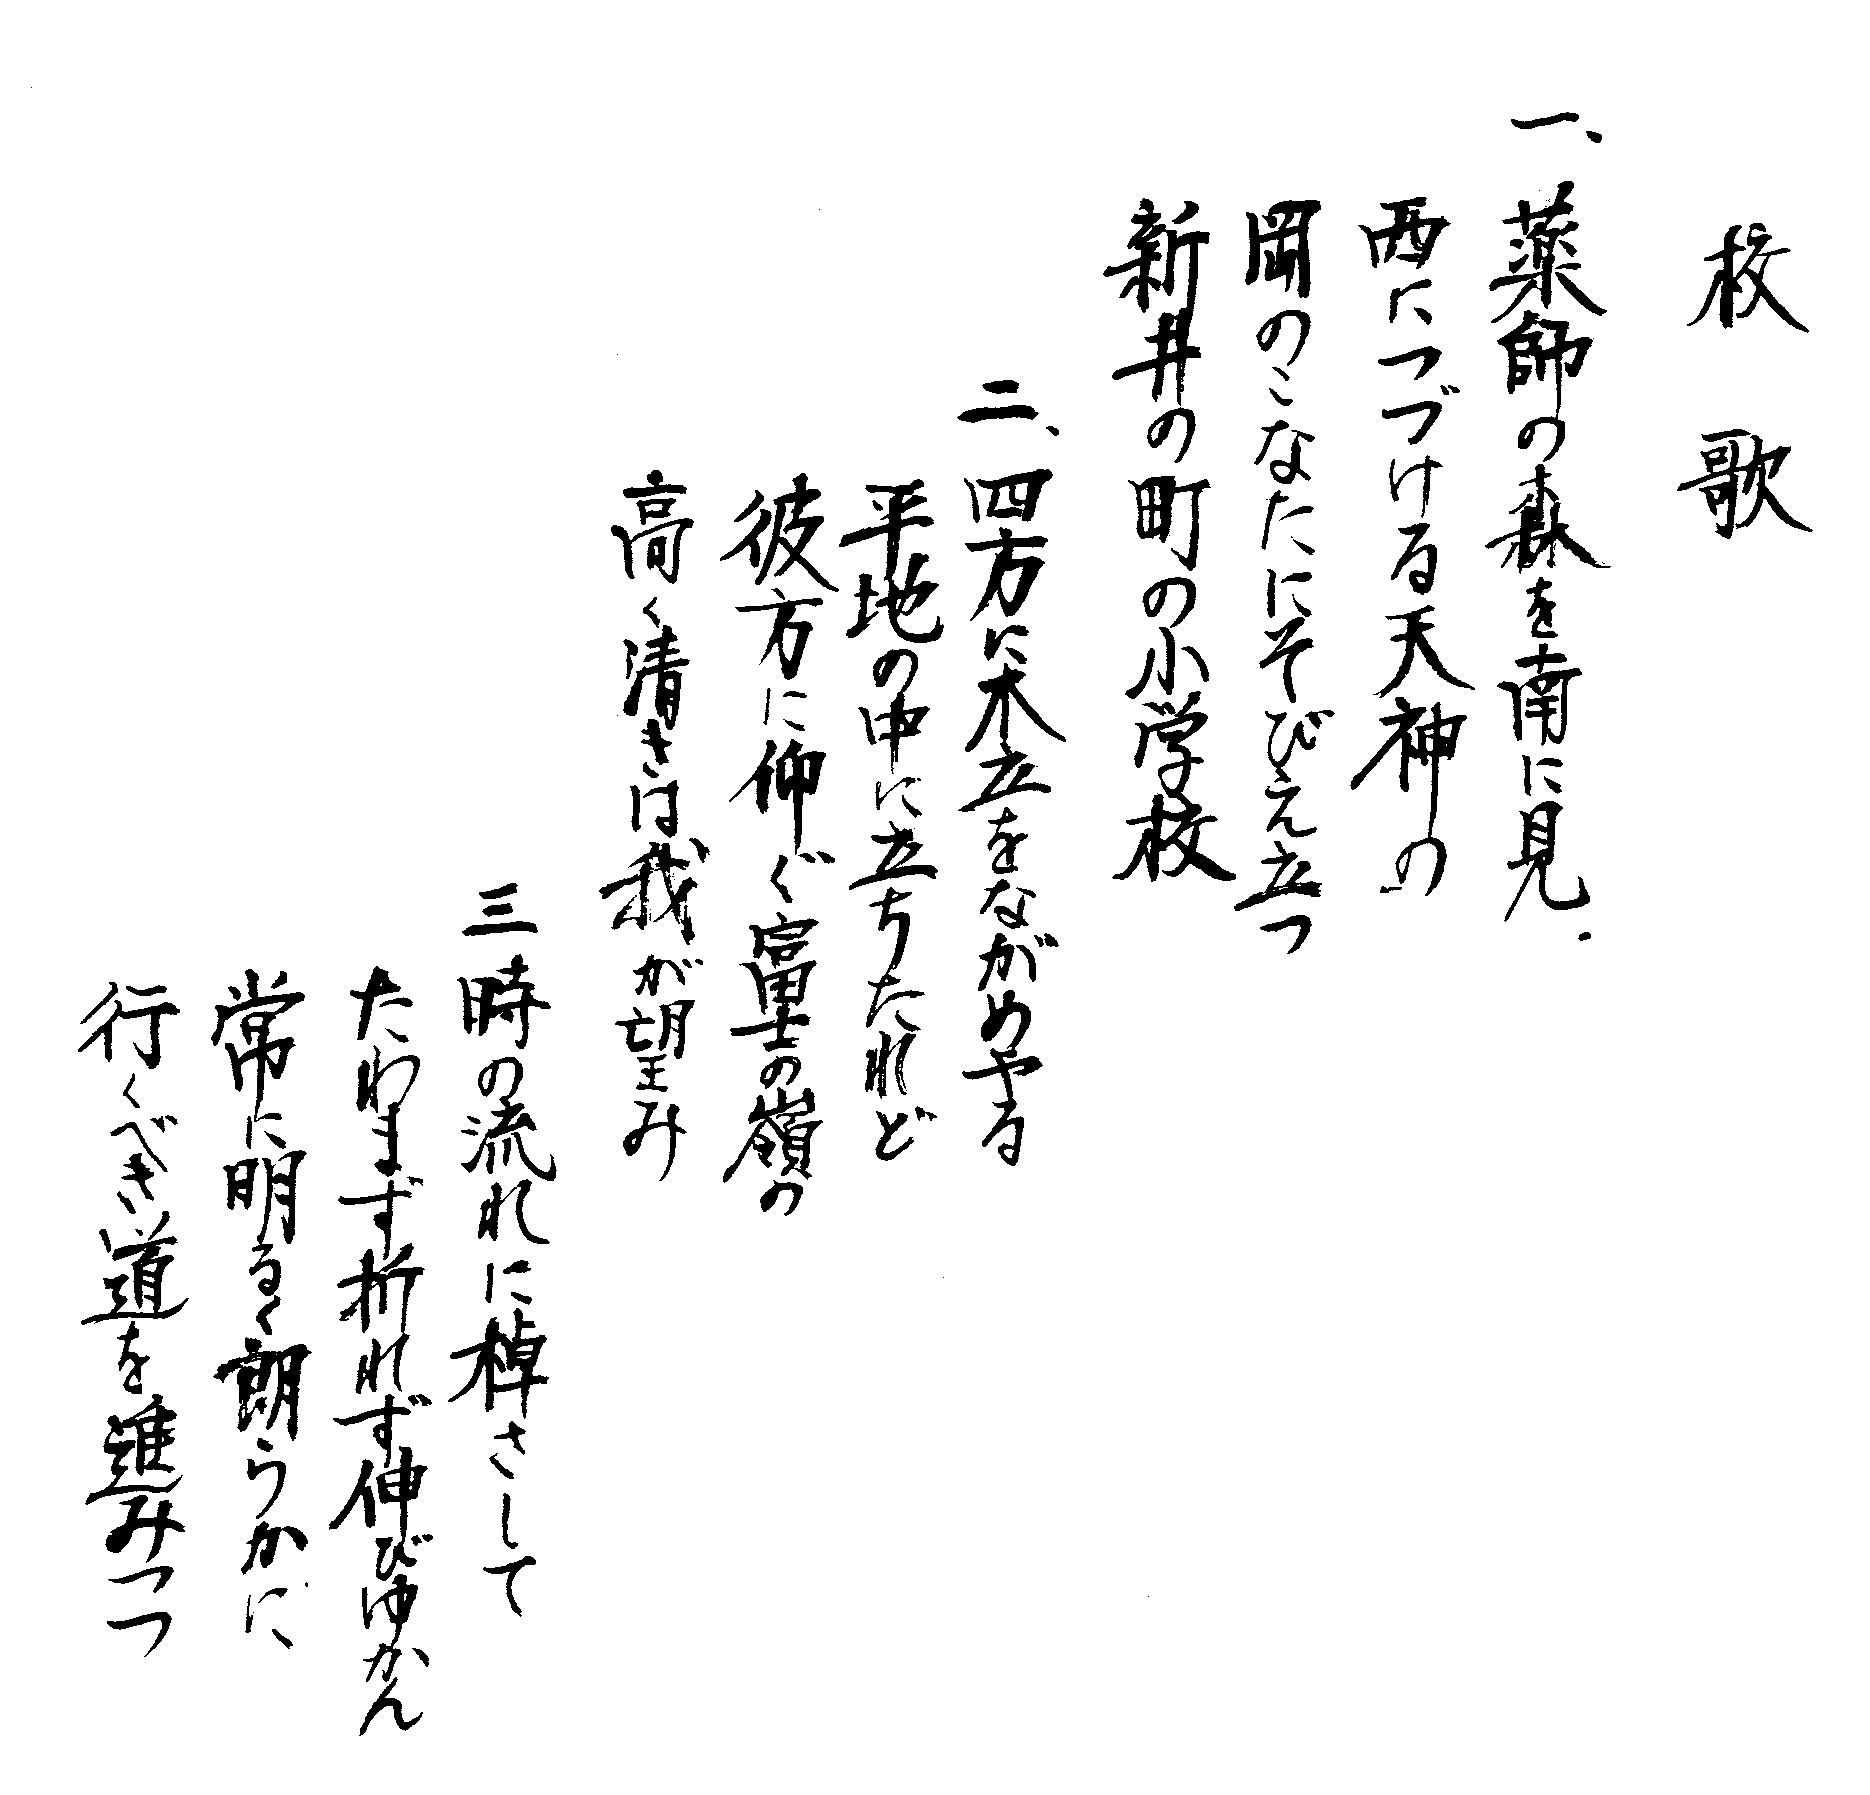 校歌
一、薬師の森を南に見.
西につづける天神の
岡のこなたにそびえ立つ
新井の町の小学校
二、四方に木立をながめやる
平地の中に立ちたれど
彼方に仰ぐ富士の嶺の
高く清きは我が望み
三時の流れに棹さして
たわまず折れず伸びゆかん
常に明るく朗らかに
行くべき道を進みつつ